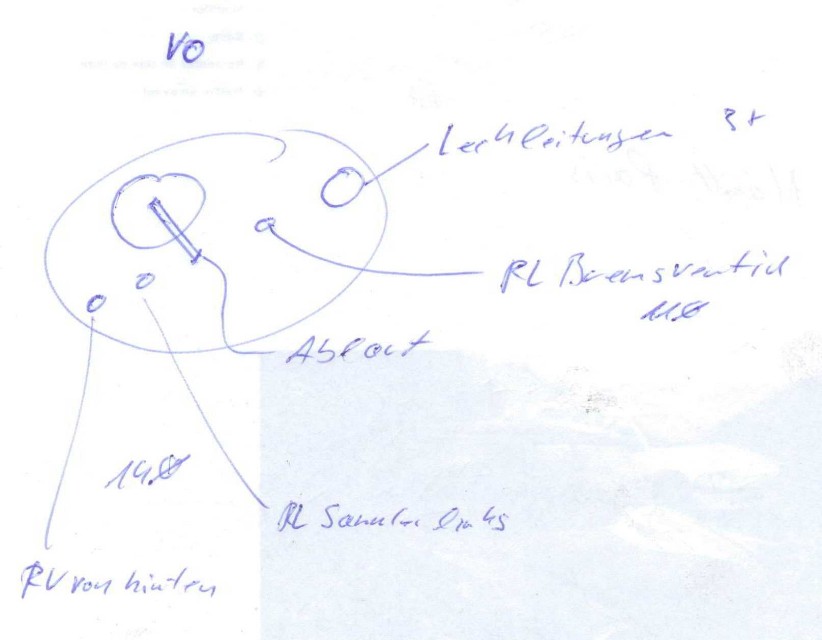 VO
Leckleitungen 3x
RL Bremsventil
11Ø
Ablauf
14Ø
RL Sammler links
RV von hinten